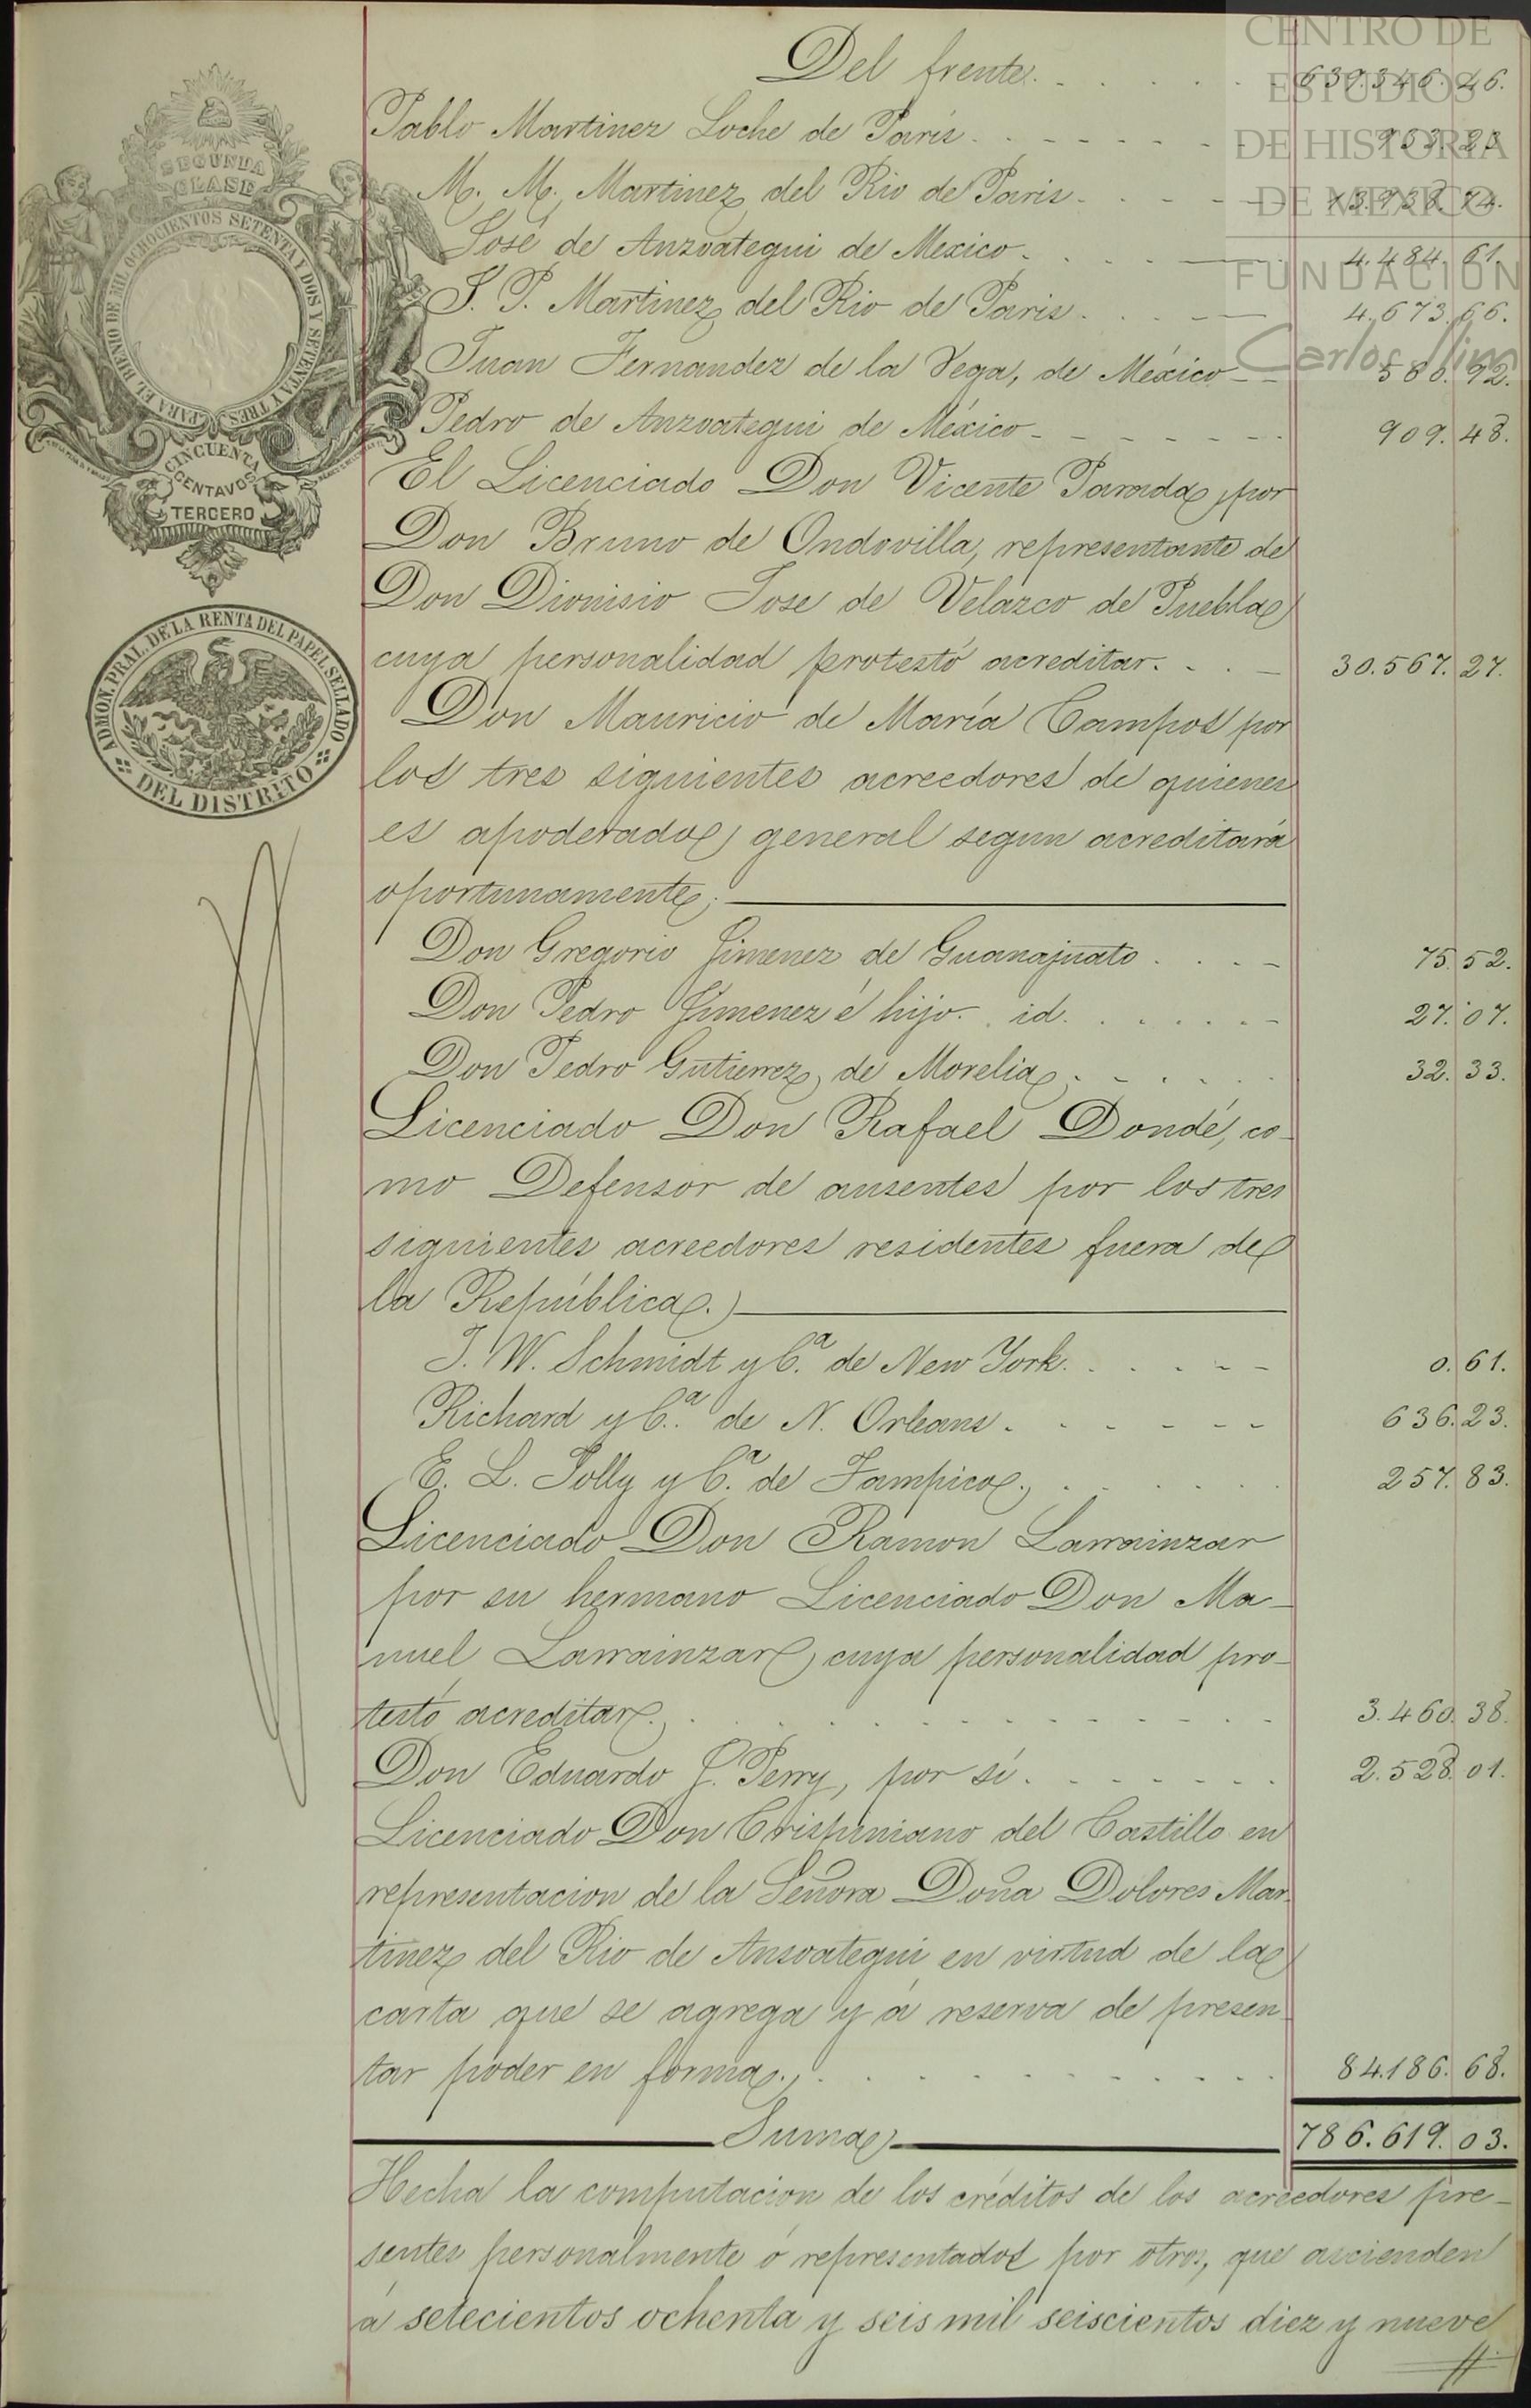 CENTRO DE
ESTUDIOS
DE HISTORIA
DE MEXICO
FUNDACIÓN
Carlos Slim
SEGUNDA
CLASE
PARA EL BIENIO DE MIL OCHOCIENTOS SETENTA Y DOS Y SETENTA Y TRES
CINCUENTA
CENTAVOS
TERCERO
ADMON. PRAL. DE LA RENTA DEL PAPEL SELLADO
DEL DISTRITO
Del frente. 639.346. 46.
Pablo Martinez Loche de Paris. 933. 23
M. M. Martinez del Rio de Paris. 13.938. 74.
José de Anzoategui de Mexico. 4.484. 61.
J. P. Martinez del Rio de Paris. 4.673. 66.
Juan Fernandez de la Vega, de México 580. 92.
Pedro de Anzoategui de México 909. 48.
El Licenciado Don Vicente Parada, por
Don Bruno de Ondovilla, representante de
Don Dionisio Jose de Velazco de Puebla
cuya personalidad protestó acreditar. 30.567. 27.
Don Mauricio de María Campos por
los tres siguientes acreedores de quienes
es apoderado general segun acreditará
oportunamente;
Don Gregorio Jimenez de Guanajuato. 75. 52.
Don Pedro Jimenez é hijo. id. 27. 07.
Don Pedro Gutierrez, de Morelia. 32. 33.
Licenciado Don Rafael Dondé, co-
mo Defensor de ausentes por los tres
siguientes acreedores residentes fuera de
la República.
J. W. Schmidt y Cª. de New York. 0. 61.
Richard y Cª. de N. Orleans. 636. 23.
E. L. Jolly y Cª. de Tampico. 257. 83.
Licenciado Don Ramon Larrainzar
por su hermano Licenciado Don Ma-
nuel Larrainzar, cuya personalidad pro-
testó acreditar. 3.460. 38.
Don Eduardo J. Perry, por sí. 2.528. 01.
Licenciado Don Crispiniano del Castillo en
representacion de la Señora Doña Dolores Mar-
tinez del Rio de Ansoategui en virtud de la
carta que se agrega y á reserva de presen-
tar poder en forma. 84.186. 68.
Suma 786.619. 03.
Hecha la computacion de los créditos de los acreedores pre-
sentes personalmente ó representados por otros, que ascienden
á setecientos ochenta y seis mil seiscientos diez y nueve